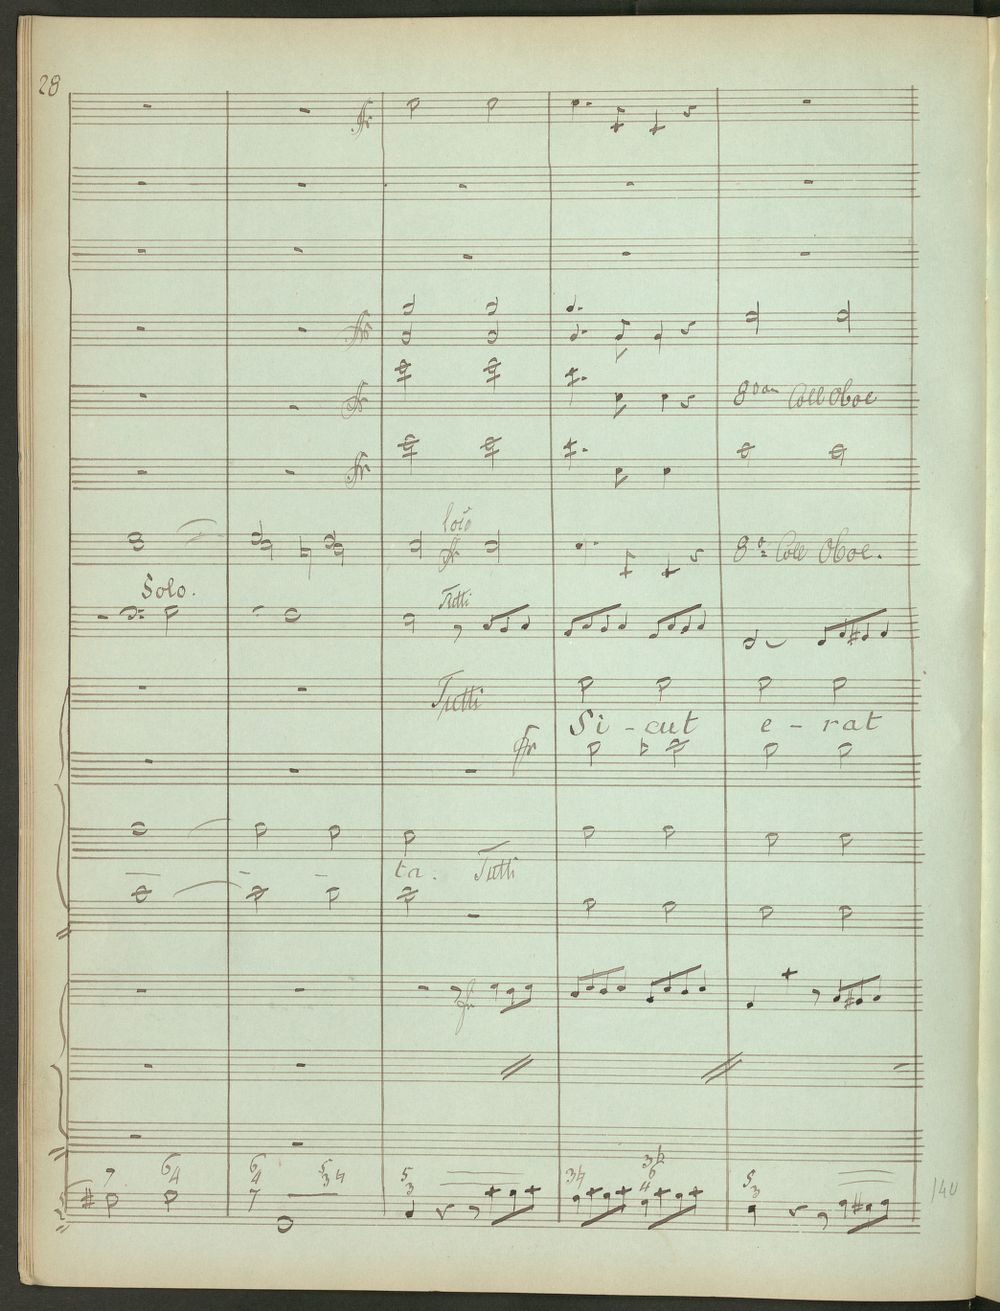 28
8va Coll Oboe
Solo
8a Coll Oboe.
Solo.
Tutti
Tutti
Si - cut e - rat
ta. Tutti
7 6 4 6 4 5 3 5 3 3 3 6 4 5 3
7
140